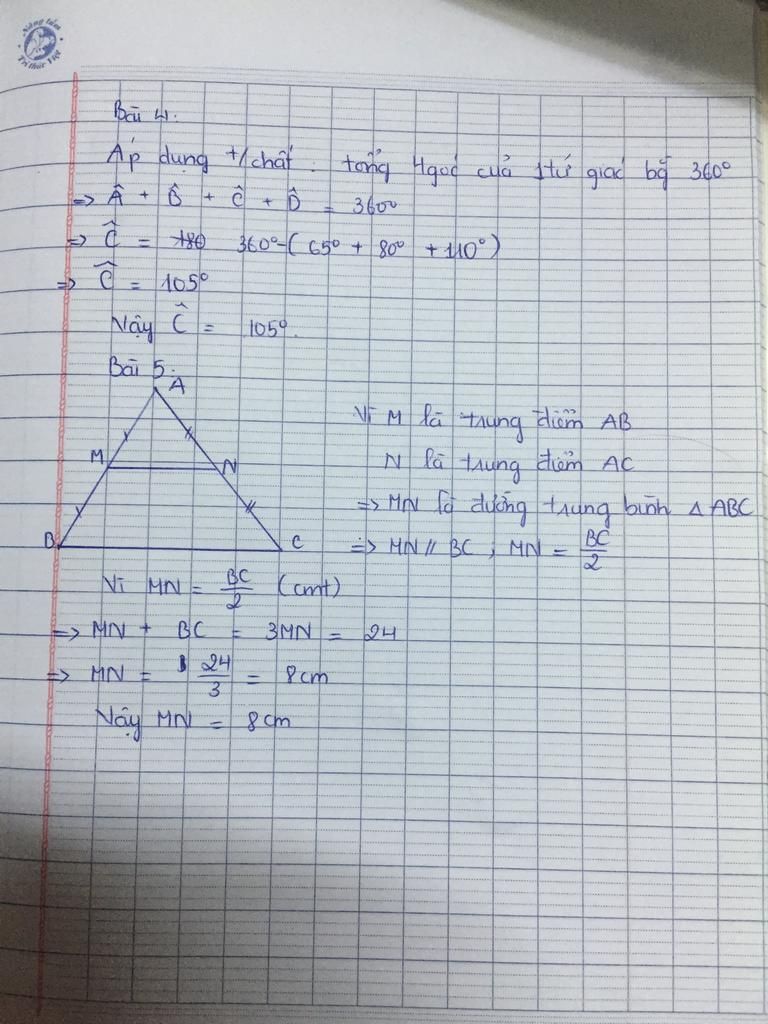 Nâng tầm
Tri thức Việt
Bài 4.
Áp dụng t/chất: tổng 4 góc của 1 tứ giác bg 360°
=> Â + B̂ + Ĉ + D̂ = 360°
=> Ĉ = 180 360° - ( 65° + 80° + 110° )
=> Ĉ = 105°
Vậy Ĉ = 105°.
Bài 5.
A
M
N
B
C
Vì M là trung điểm AB
N là trung điểm AC
=> MN là đường trung bình Δ ABC
=> MN // BC , MN = BC/2
Vì MN = BC/2 (cmt)
=> MN + BC = 3MN = 24
=> MN = 24/3 = 8cm
Vậy MN = 8cm